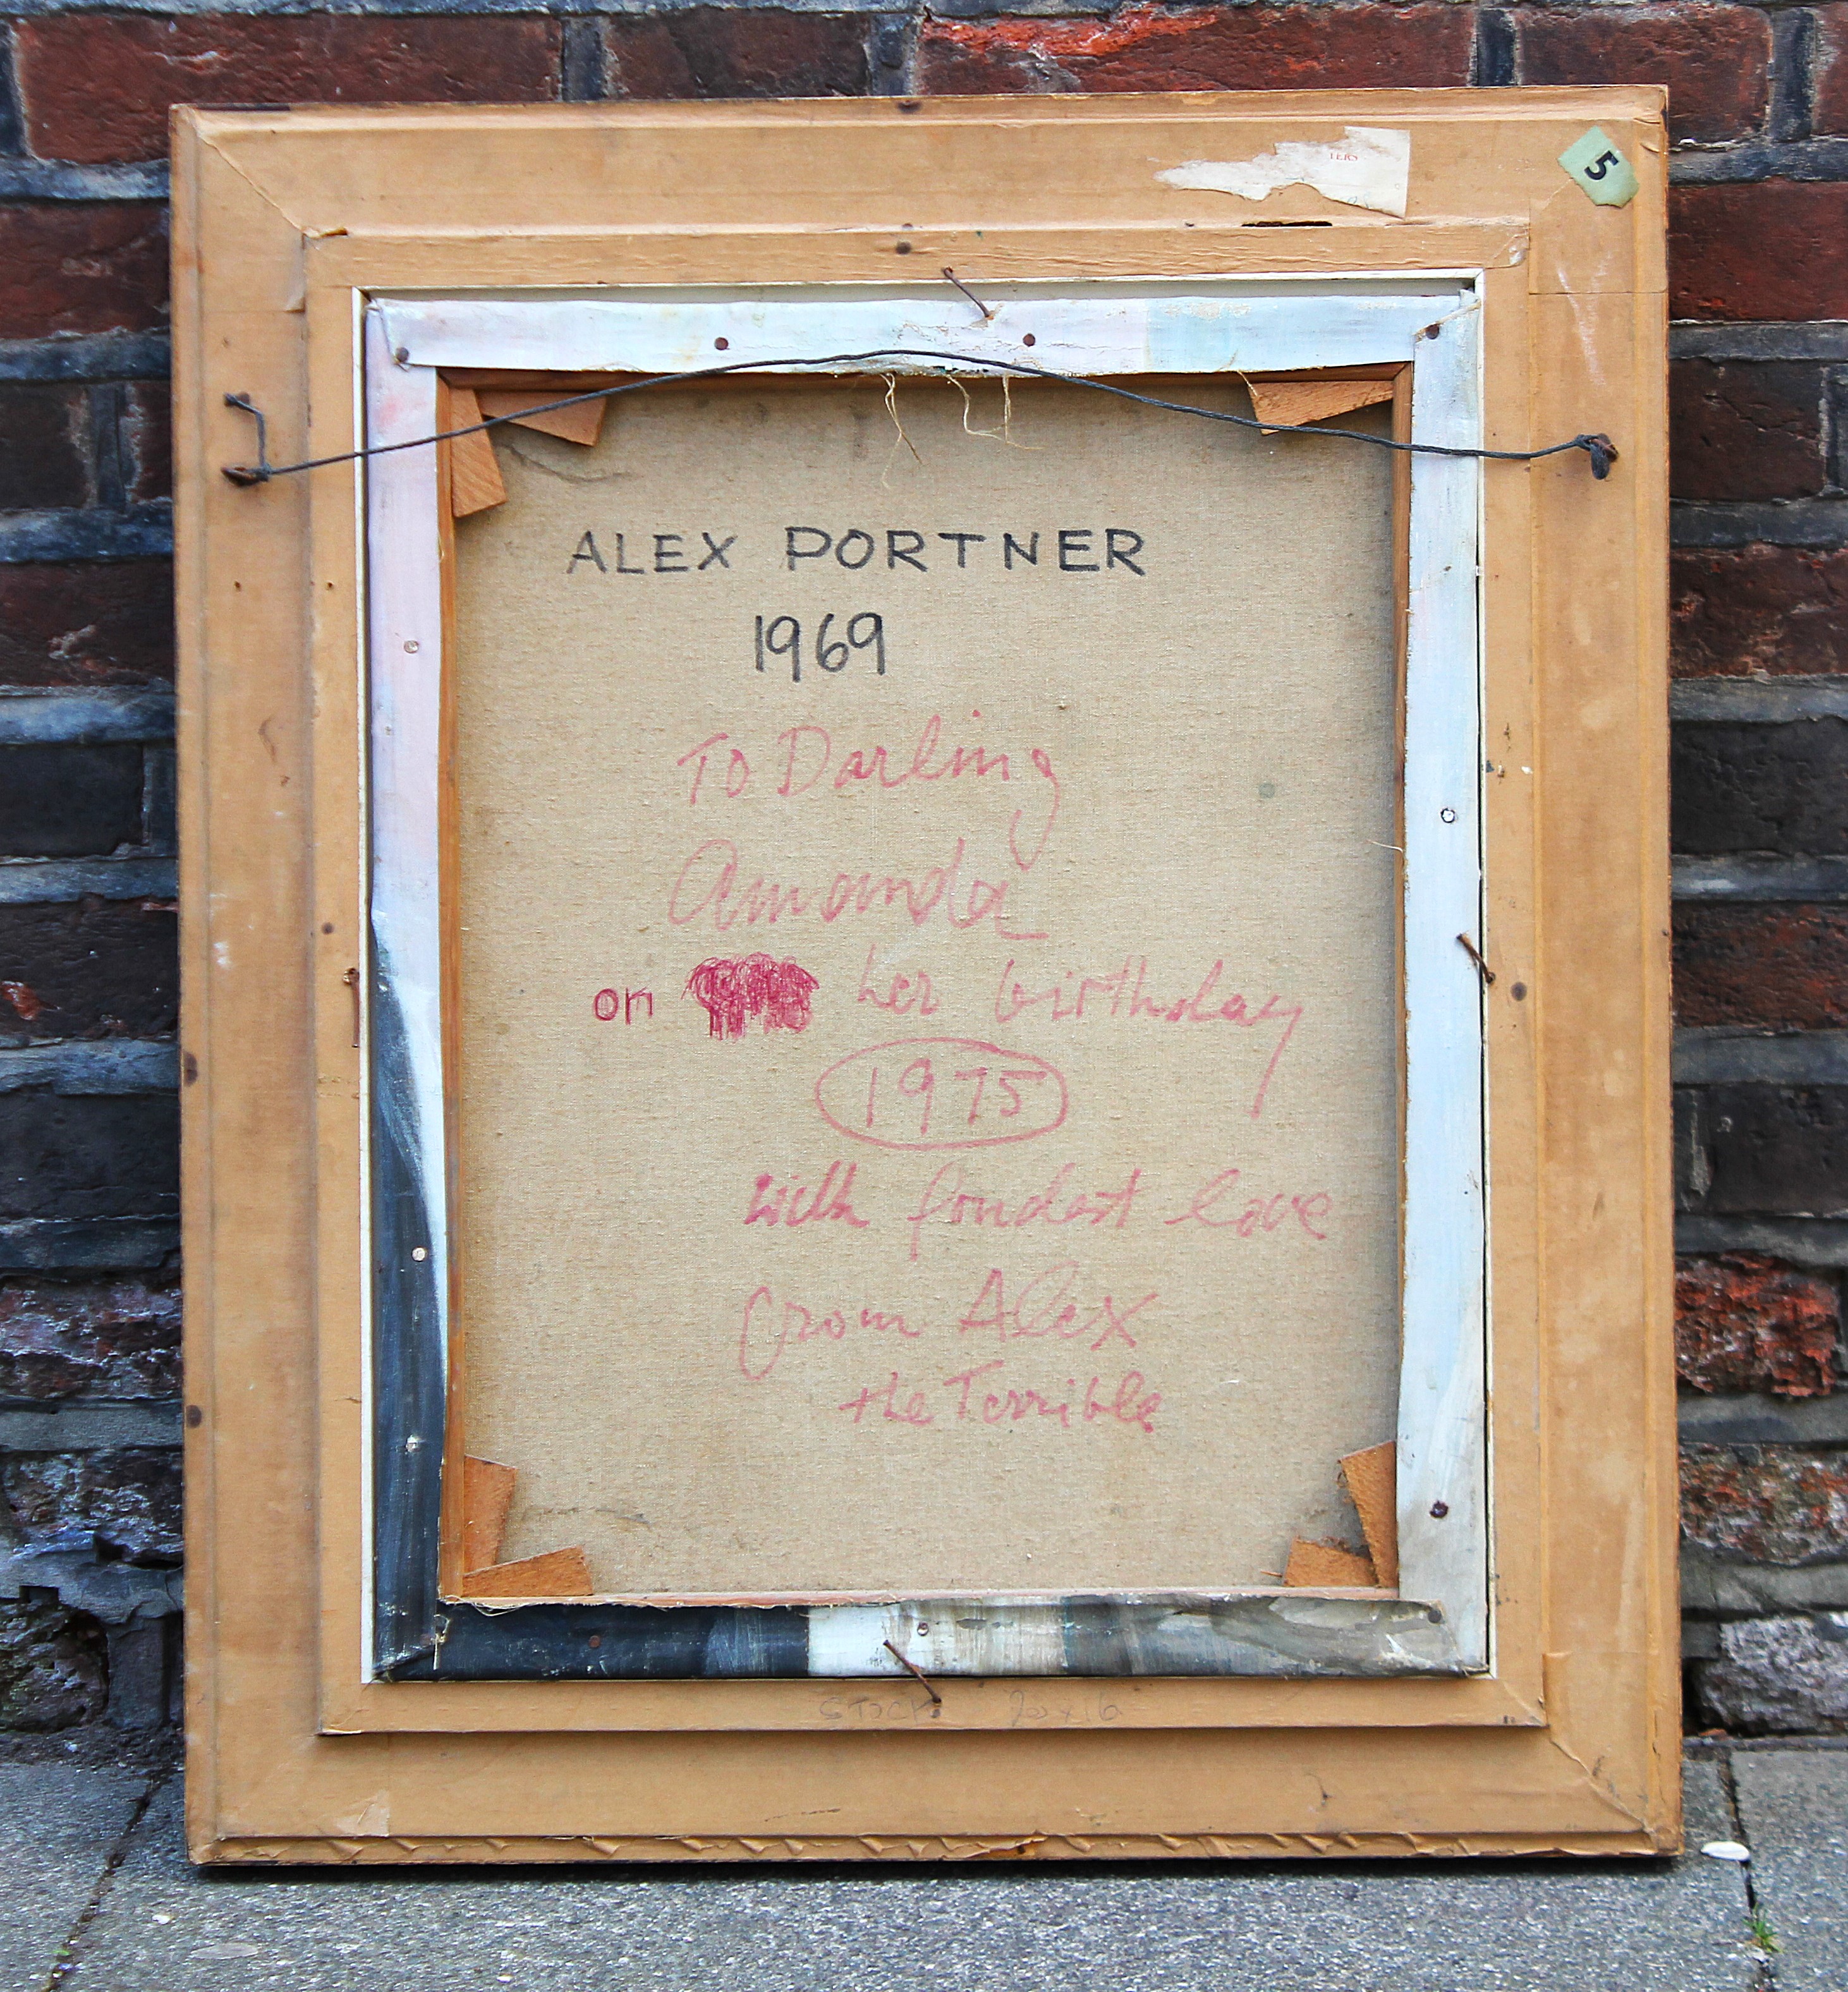 TERS
5
ALEX PORTNER
1969
To Darling
Amanda
on her birthday
1975
with fondest love
from Alex
the Terrible
STOCK 20x16